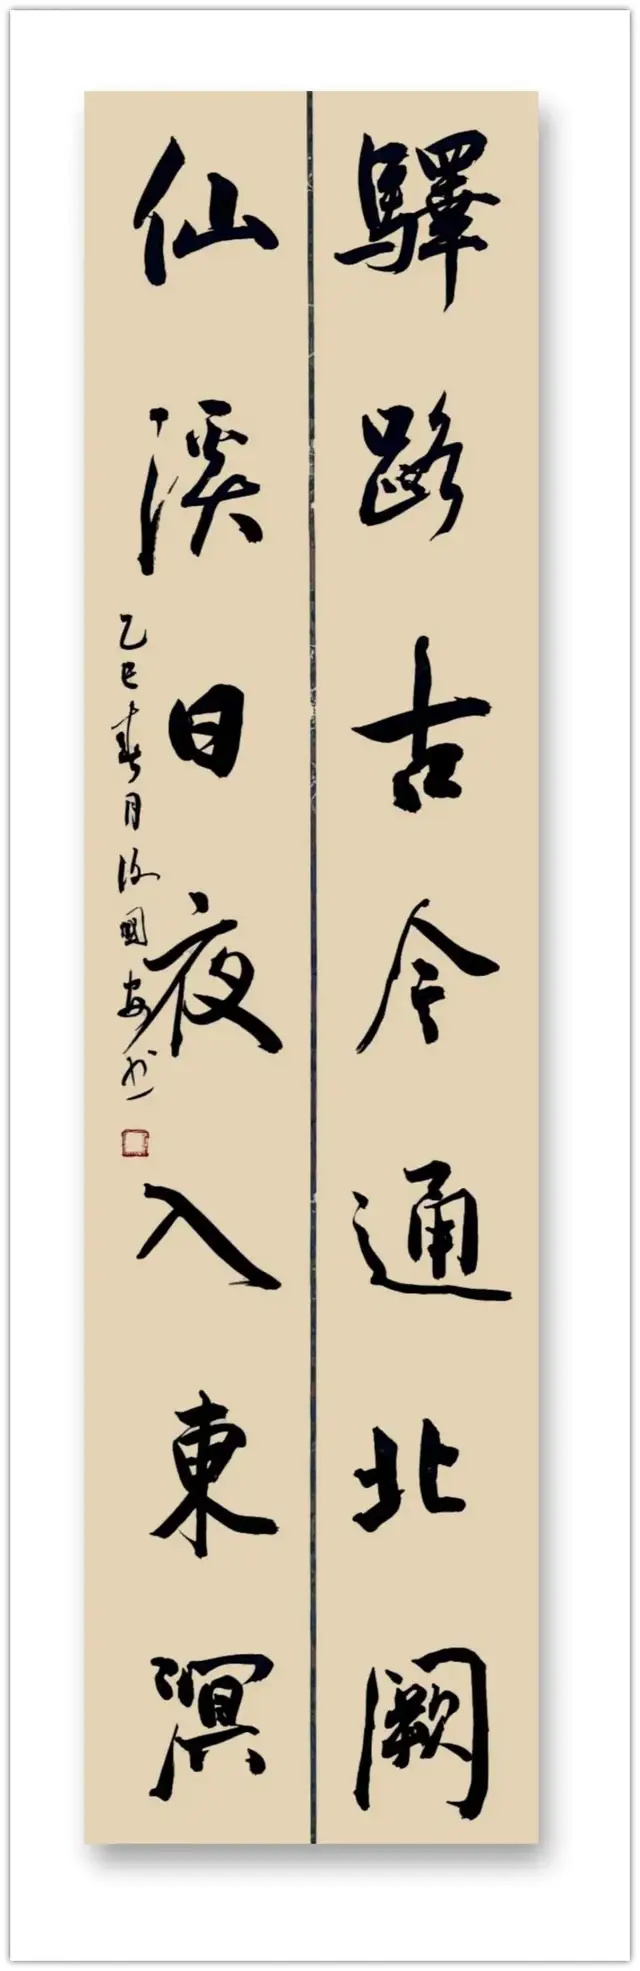 驛路古今通北闕
仙溪日夜入東溟
乙巳春月 國安书